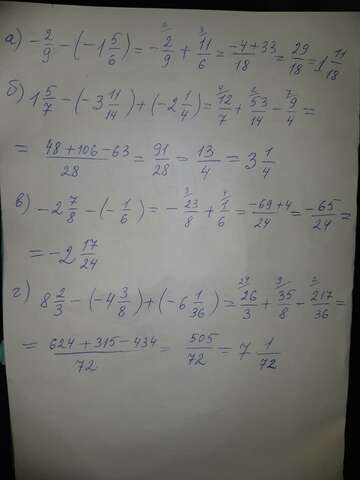 а) -2/9 - (-1 5/6) = -2/9 + 11/6 = -4+33/18 = 29/18 = 1 11/18
б) 1 5/7 - (-3 11/14) + (-2 1/4) = 12/7 + 53/14 - 9/4 =
= 48+106-63/28 = 91/28 = 13/4 = 3 1/4
в) -2 7/8 - (-1/6) = -23/8 + 1/6 = -69+4/24 = -65/24 =
= -2 17/24
г) 8 2/3 - (-4 3/8) + (-6 1/36) = 26/3 + 35/8 - 217/36 =
= 624+315-434/72 = 505/72 = 7 1/72